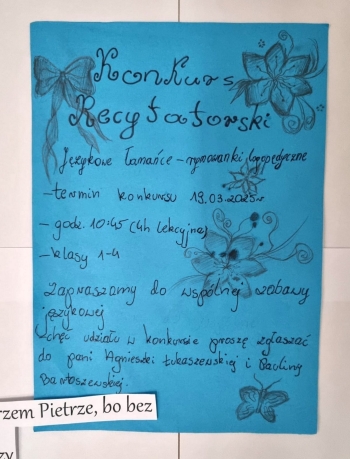 Konkurs
Recytatorski
Językowe łamańce - rymowanki logopedyczne
- termin konkursu 19.03.2025r
- godz. 10:45 (4h lekcyjna)
- klasy 1-4
Zapraszamy do wspólnej zabawy
językowej
Chęć udziału w konkursie proszę zgłaszać
do pani Agnieszki Łukaszewskiej i Pauliny
Bartoszewskiej.
rzem Pietrze, bo bez
zy